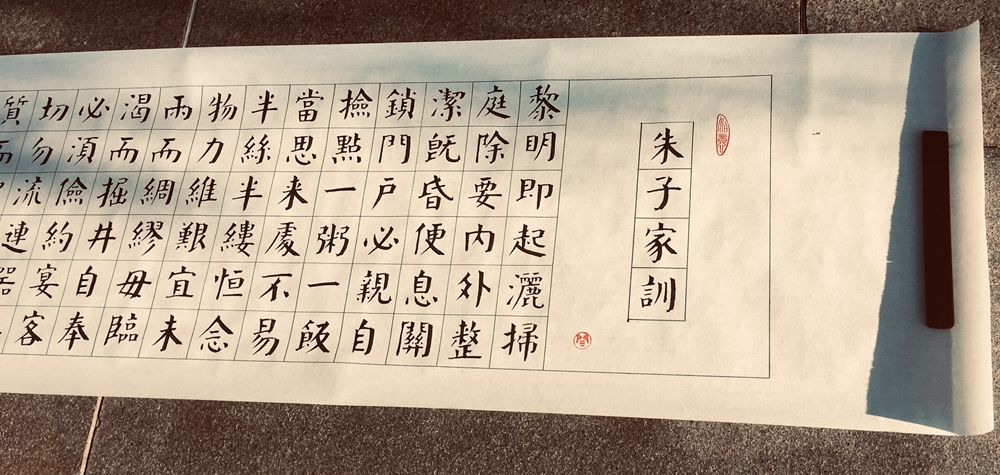 朱子家訓
黎明即起灑掃
庭除要內外整
潔既昏便息關
鎖門戶必親自
撿點一粥一飯
當思来處不易
半絲半縷恒念
物力維艱宜未
雨而綢繆毋臨
渴而掘井自奉
必須儉約宴客
切勿流連器
質而